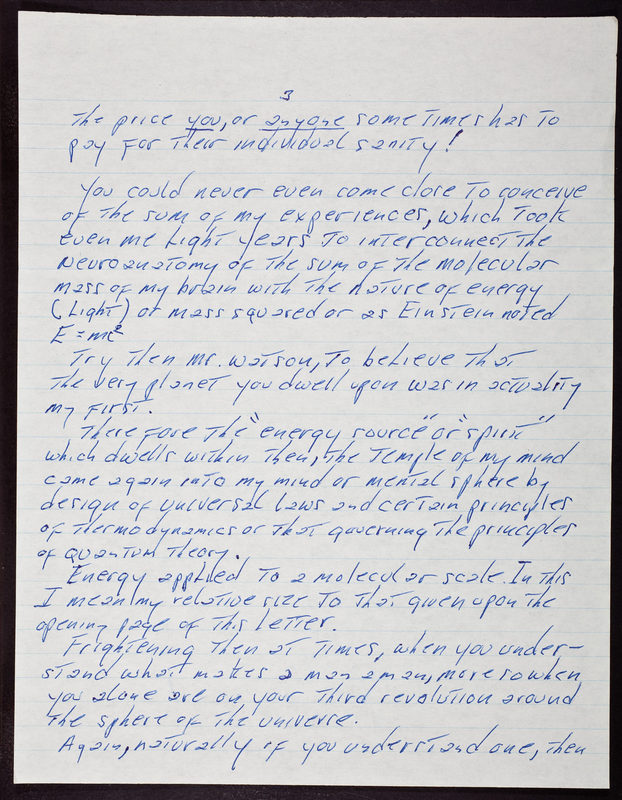 3
The price you, or anyone sometimes has to
pay for their individual sanity!
You could never even come close to conceive
of the sum of my experiences, which took
even me Light years to interconnect the
Neuroanatomy of the sum of the molecular
mass of my brain with the nature of energy
(Light) or mass squared or as Einstein noted
E = mc²
Try then Mr. Watson, to believe that
the very planet you dwell upon was in actuality
my first.
Therefore the "energy source" or "spirit"
which dwells within then, the Temple of my mind
came again into my mind or mental sphere by
design of universal laws and certain principles
of thermodynamics or that governing the principles
of quantum theory.
Energy applied to a molecular scale. In this
I mean my relative size to that given upon the
opening page of this letter.
Frightening then at times, when you under-
stand what makes a man a man, more so when
you alone are on your third revolution around
the sphere of the universe.
Again, naturally if you understand one, then